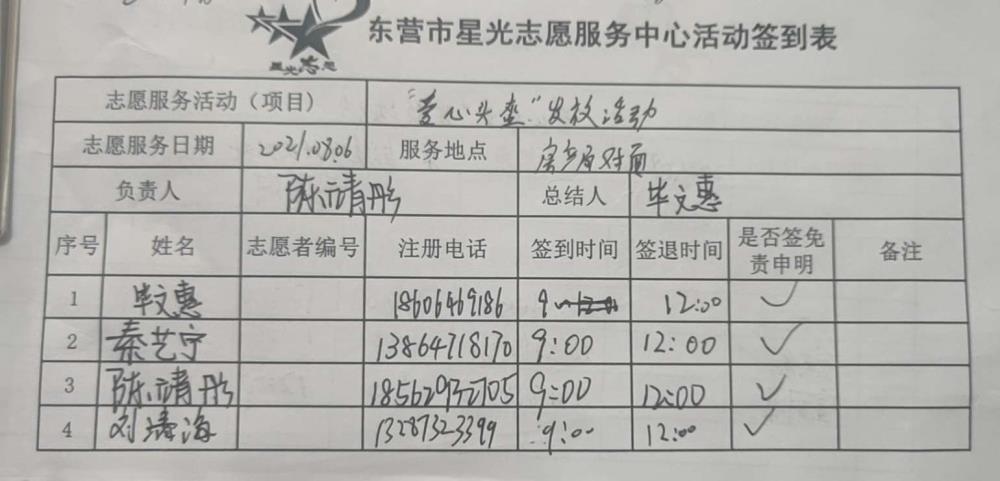 东营市星光志愿服务中心活动签到表
星光志愿
志愿服务活动（项目） "爱心头盔"发放活动
志愿服务日期 2021.08.06 服务地点 房产局对面
负责人 陈靖彤 总结人 毕文惠
序号 姓名 志愿者编号 注册电话 签到时间 签退时间 是否签免责申明 备注
1 毕文惠 18606469186 9 12:00 ✓
2 秦艺宁 13864718170 9:00 12:00 ✓
3 陈靖彤 9:00 12:00 ✓
4 刘 海 13287323399 9:00 12:00 ✓